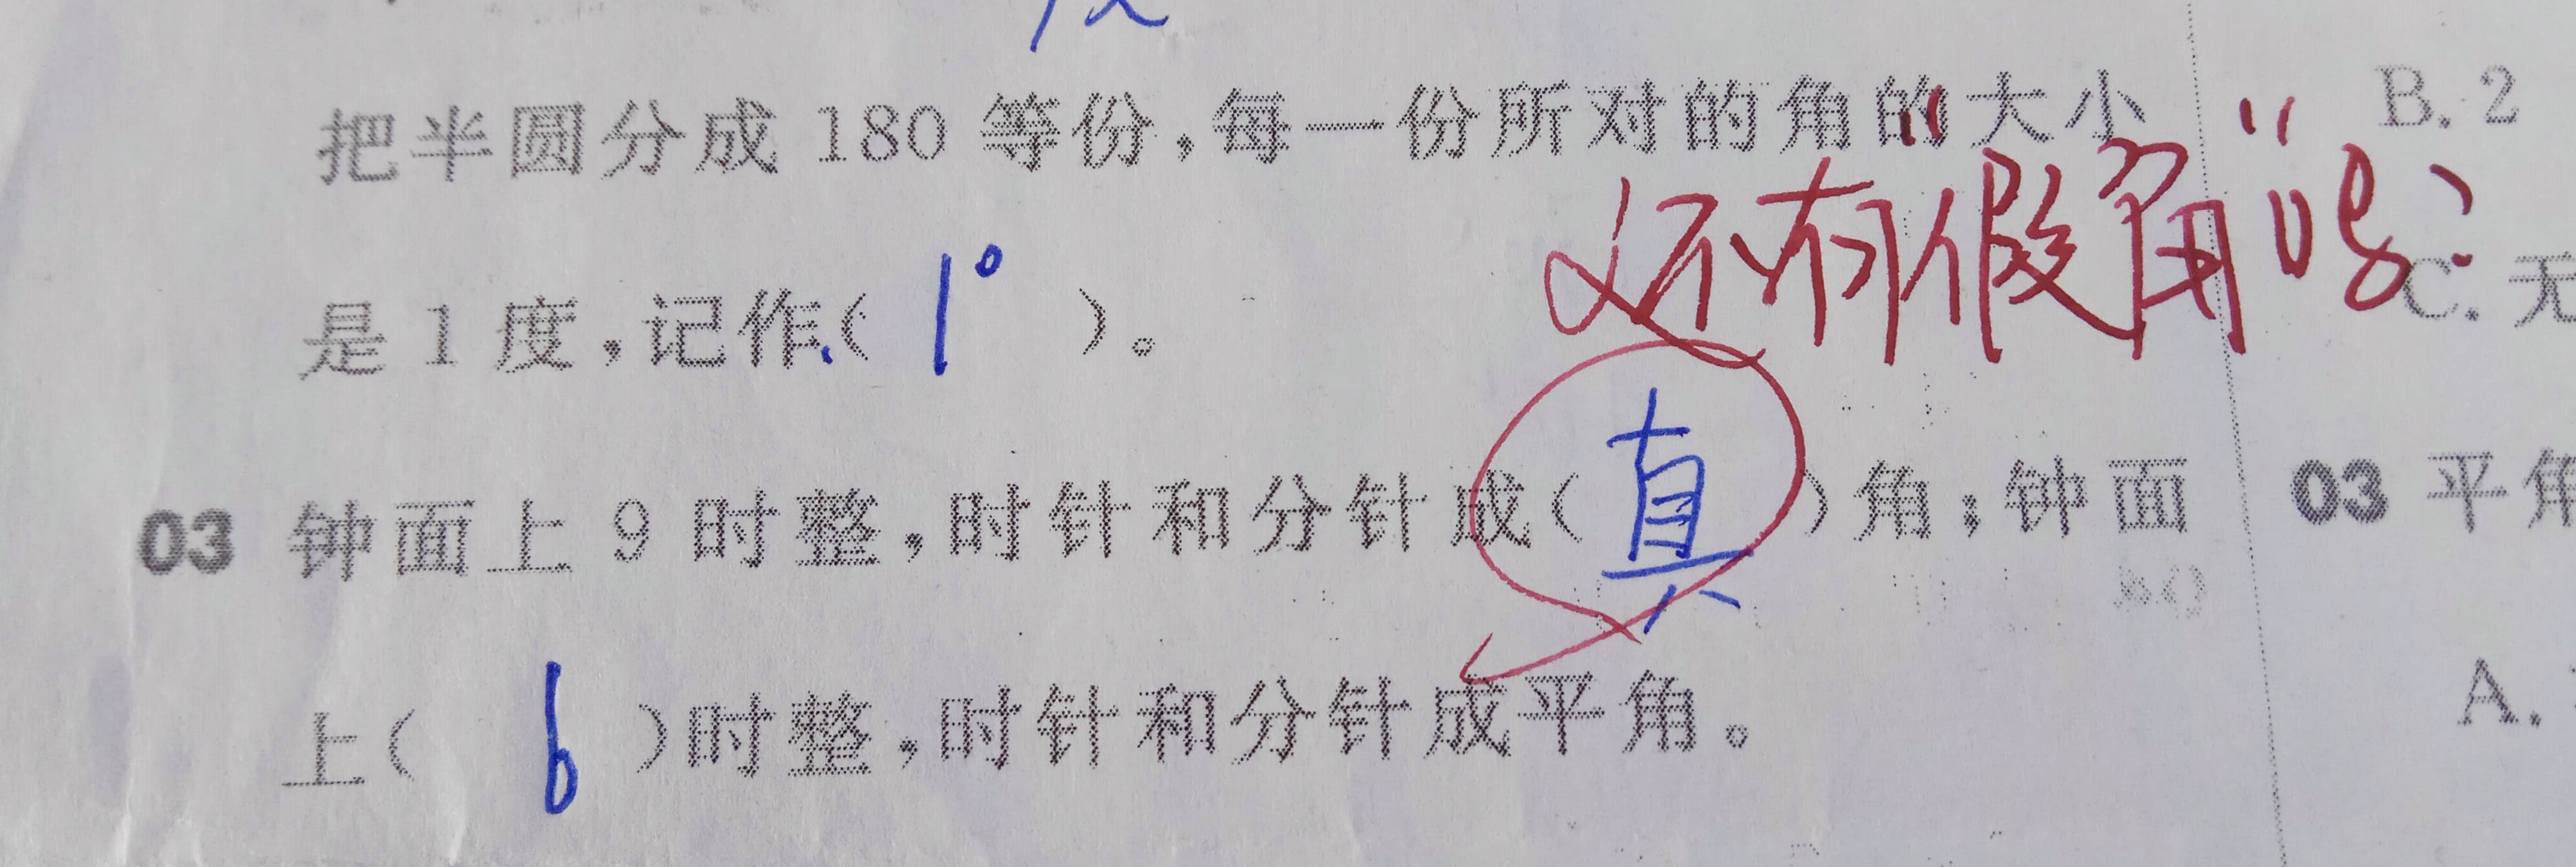 把半圆分成 180 等份，每一份所对的角的大小
是 1 度，记作（ 1° ）。
还有"假角"吗?
03 钟面上 9 时整，时针和分针成（ 真 ）角；钟面
上（ 6 ）时整，时针和分针成平角。
B. 2
C. 无
03 平角
A.